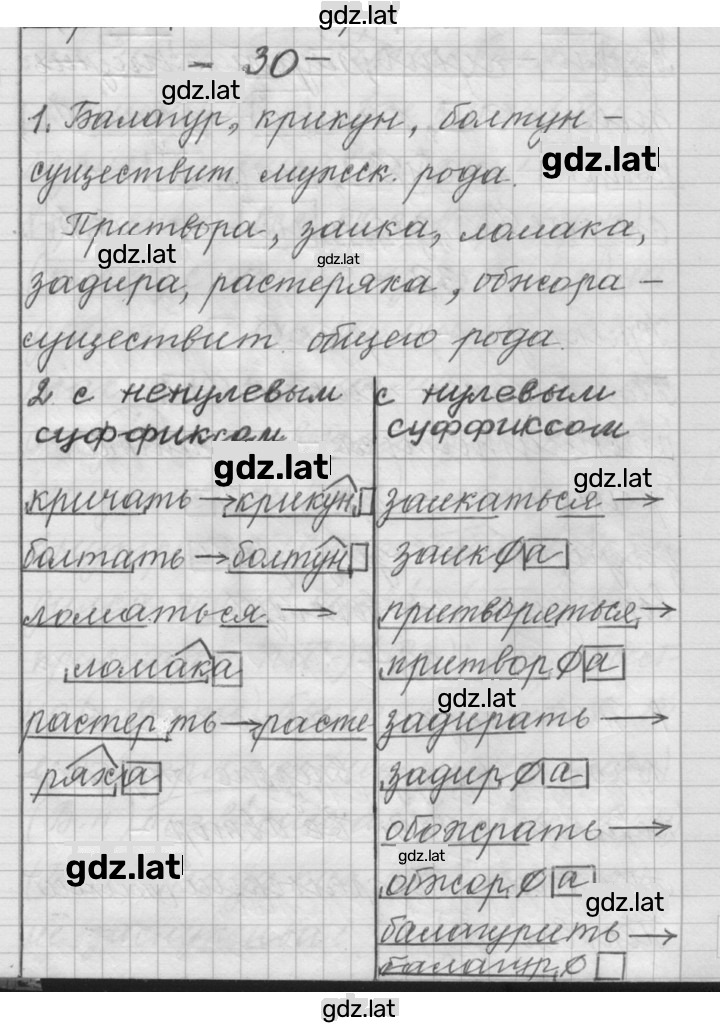 gdz.lat
- 30 -
gdz.lat
1. Балагур, крикун, болтун -
gdz.lat
существит. мужск. рода.
Притвора, заика, ломака,
gdz.lat
gdz.lat
задира, растеряха, обжора -
существит. общего рода.
2 с ненулевым
суффиксом
gdz.lat
кричать → крикун
болтать → болтун
ломаться →
ломака
растерять → расте
ряха
gdz.lat
с нулевым
суффиксом
gdz.lat
заикаться →
заик∅а
притворяться →
притвор∅а
gdz.lat
задирать →
задир∅а
обожрать →
gdz.lat
обжор∅а
gdz.lat
балагурить →
балагур∅
gdz.lat